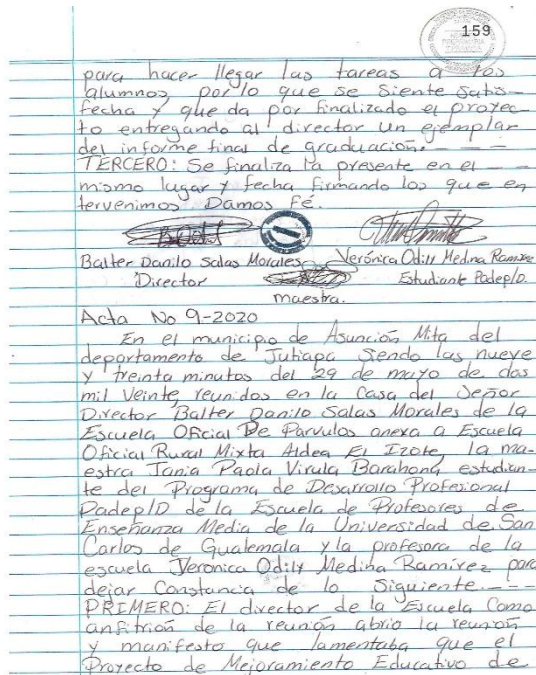 159
para hacer llegar las tareas a los
alumnos, por lo que se siente satis-
fecha y que da por finalizado el proyec-
to entregando al director un ejemplar
del informe final de graduación. - - -
TERCERO: Se finaliza la presente en el - -
mismo lugar y fecha firmando los que en
tervenimos Damos Fé.
Balter Danilo Salas Morales Verónica Odily Medina Ramírez
Director Estudiante Padep/D.
maestra.
Acta No 9-2020
En el municipio de Asunción Mita del
departamento de Jutiapa Siendo las nueve
y treinta minutos del 29 de mayo de dos
mil veinte, reunidos en la casa del Señor
Director Balter Danilo Salas Morales de la
Escuela Oficial De Parvulos anexa a Escuela
Oficial Rural Mixta Aldea El Izote, la ma-
estra Tania Paola Virula Barahona, estudian-
te del Programa de Desarrollo Profesional
Padep/D de la Escuela de Profesores de
Enseñanza Media de la Universidad de San
Carlos de Guatemala y la profesora de la
escuela Veronica Odily Medina Ramírez para
dejar Constancia de lo Siguiente. - - -
PRIMERO: El director de la Escuela Como
anfitrión de la reunión abrio la reunión
y manifesto que lamentaba que el
Proyecto de Mejoramiento Educativo de